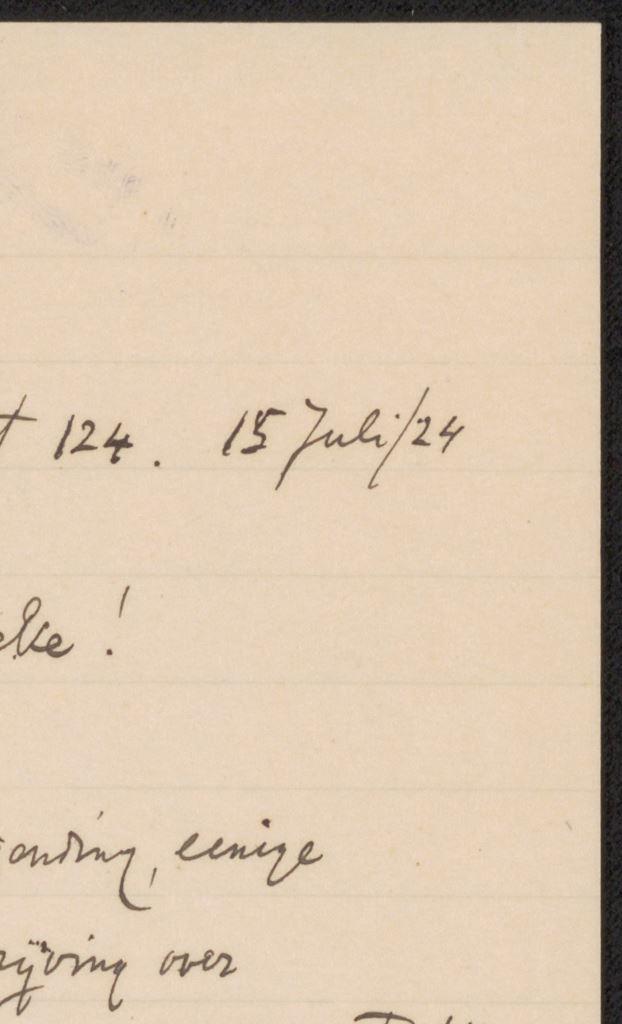 t 124. 15 Juli/24
elke!
onding, eenige
rijving over